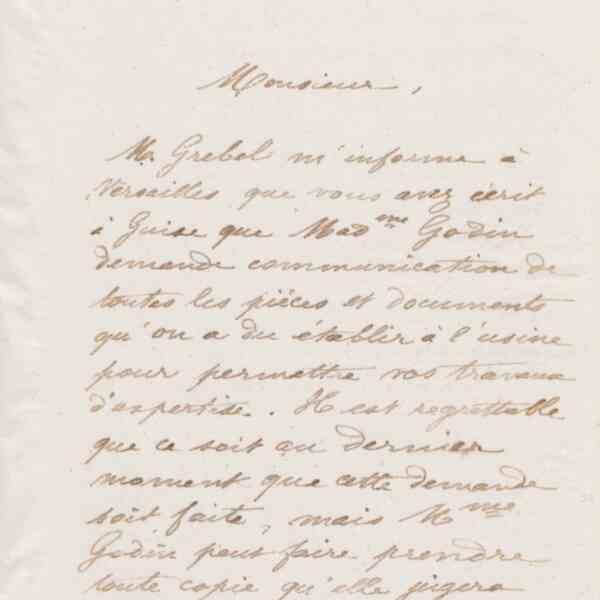 Monsieur,
M. Grebel m'informe à
Versailles que vous avez écrit
à Guise que Mad^me Godin
demande communication de
toutes les pièces et documents
qu'on a du établir à l'usine
pour permettre vos travaux
d'expertise. Il est regrettable
que ce soit au dernier
moment que cette demande
soit faite, mais M^me
Godin peut faire prendre
toute copie qu'elle jugera